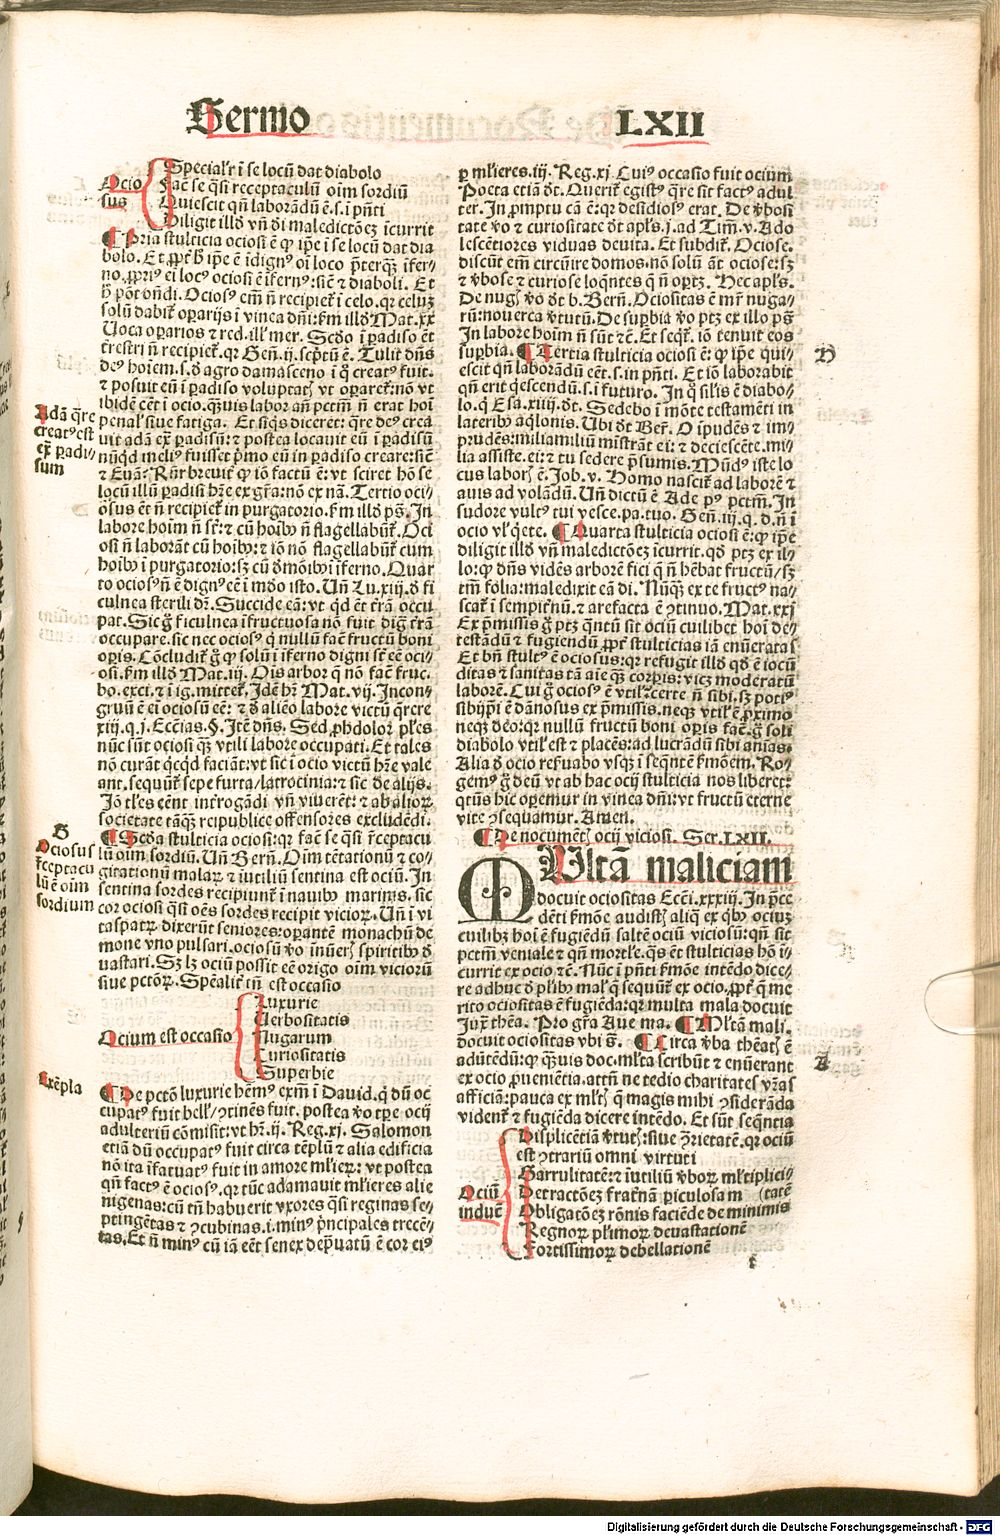 Sermo LXII
Ocio
sus
Specialr̄ ī se locū dat diabolo
Fac̄ se q̄si receptaculū oīm sordiū
Quiescit qn̄ laborādū ē.s.ī pn̄ti
Diligit illđ vn̄ dī maledictōeꝫ īcurrit
¶ Pria stulticia ociosi ē ꝙ ip̄e ī se locū dat dia
bolo. Et ꝓpt̄ h̄ ip̄e ē īdignꝰ oī loco p̄terqꝫ īfer⸗
no. ꝓpriꝰ eī locꝰ ociosi ē īfernꝰ: sic̄ ⁊ diaboli. Et
h̄ pōt on̄di. Ociosꝰ em̄ n̄ recipiet̄ ī celo. qꝛ celuꝫ
solū dabit̄ oꝑarijs ī vinea dn̄i: s̄m illđ Mat. xx
Uoca oꝑarios ⁊ red. ill̓ mer. Scđo ī ꝑadiso ēt
t̄restri n̄ recipiet̄. qꝛ Gen̄. ij. scp̄tū ē. Tulit dn̄s
deꝰ hoīem. s. đ agro damasceno ī q̄ creatꝰ fuit.
⁊ posuit eū ī ꝑadiso voluptatꝭ vt oꝑaret̄: nō vt
ibidē eēt ī ocio. qꝫuis labor an̄ pctm̄ n̄ erat hoī
penal̓ siue fatiga. Et siq̄s diceret: q̄re deꝰ crea
uit adā ex̄ ꝑadisū: ⁊ postea locauit eū ī ꝑadisū
nūqđ meliꝰ fuisset pͥmo eū in ꝑadiso creare: sic̄
⁊ Euā? Rn̄r breuit̄ ꝙ iō factū ē: vt sciret hō se
locū illū ꝑadisi hr̄e ex gr̄a: nō ex nā. Tertio oci⸗
osus ēt n̄ recipiet̄ in purgatorio. s̄m illđ ps̄. In
labore hoīm n̄ st̄: ⁊ cū hoībꝰ n̄ flagellabūt̄. Oci
osi n̄ laborāt cū hoībꝰ: ⁊ iō nō flagellabūt̄ cum
hoībꝰ ī purgatorio: sꝫ cū đmōibꝰ ī īferno. Quar
to ociosꝰ n̄ ē dignꝰ eē ī mđo isto. Un̄ Lu. xiij. đ fi
culnea sterili dr̄. Succide eā: vt qͥd ēt t̄rā occu
pat. Sic g̊ ficulnea īfructuosa nō fuit dig̓ t̄rā
occupare. sic nec ociosꝰ qͥ nullū fac̄ fructū boni
oꝑis. Cōcludit̄ g̊ ꝙ solū ī īferno digni st̄ eē oci⸗
osi. s̄m illđ Mat. iij. Oīs arbor q̄ nō fac̄ fruc.
bo. exci. ⁊ ī ig. mittet̄. Idē hr̄ Mat. vij. Incon⸗
gruū ē eī ociosū eē: ⁊ đ aliēo labore victū q̄rere
xiij. q. j. Ecc̄ias. §. Itē dn̄s. Sed ꝓhdolor pl̓es
nūc sūt ociosi qͣꝫ vtili labore occupati. Et tales
nō curāt qͥcqd faciāt: vt sic ī ocio victū hr̄e vale
ant. sequūt̄ sepe furta/latrocinia: ⁊ sic̄ de alijs.
Iō tl̓es eēnt introgādi vn̄ viuerēt: ⁊ ab alioꝝ
societate tāqͣꝫ reipublice offensores excludēdi.
¶ Scđa stulticia ociosi: qꝛ fac̄ se q̄si r̄ceptacu
lū oīm sordiū. Un̄ Bern̄. Oīm tētationū ⁊ co⸗
gitationū malaꝝ ⁊ īutiliū sentina est ociū. In
sentina sordes recipiunt̄ ī nauibꝰ marinis. sic
cor ociosi q̄si oēs sordes recipit vicioꝝ. Un̄ ī vi
taspatꝝ dixerūt seniores: oꝑantē monachū de
mone vno pulsari. ociosū v̊o īnūer̄ꝭ spiritibꝰ đ
uastari. Sꝫ lꝫ ociū possit eē origo oīm vicioꝝ
siue pctōꝝ. Spēalit̄ tn̄ est occasio
Ocium est occasio
Luxurie
Uerbositatis
Nugarum
Curiositatis
Superbie
¶ De pctō luxurie hēmꝰ exm̄ ī Dauid. qͥ dū oc
cupatꝰ fuit bell̓/ ꝯtinēs fuit. postea v̊o tp̄e ocij
adulteriū cōmisit: vt hr̄. ij. Reg. xj. Salomon
etiā dū occupatꝰ fuit circa tēplū ⁊ alia edificia
nō ita īfatuatꝰ fuit in amore ml̓ieꝝ: vt postea
qn̄ factꝰ ē ociosꝰ. qꝛ tūc adamauit ml̓ieres alie
nigenas: cū tn̄ habuerit vxores q̄si reginas se⸗
ptingētas ⁊ ꝯcubinas. i. minꝰ pͥncipales trecē⸗
tas. Et n̄ minꝰ cū iā eēt senex dep̄uatū ē cor eiꝰ
Adā q̄re
creatꝰ est
ex̄ ꝑadi⸗
sum
B
Ociosus
r̄ceptacu
lū ē oīm
sordium
Exēpla
ꝑ ml̓ieres. iij. Reg. xj Cuiꝰ occasio fuit ocium
Poeta etiā đt. Querit̄ egistꝰ q̄re sit factꝰ adul
ter. In ꝓmptu cā ē: qꝛ desidiosꝰ erat. De v̓bosi
tate v̊o ⁊ curiositate đt apl̓s. j. ad Tim̄. v. Ado
lescētiores viduas deuita. Et subdit̄. Ociose.
discūt em̄ circuīre domos. nō solū āt ociose: sꝫ
⁊ v̓bose ⁊ curiose loq̄ntes q̄ n̄ oꝑtꝫ. Hec apl̓s.
De nugꝭ v̊o đt b. Bern̄. Ociositas ē mr̄ nuga⸗
rū: nouerca v̓tutū. De suꝑbia v̊o ptꝫ ex illo ps̄
In labore hoīm n̄ sūt ⁊c̄. Et seqt̄. iō tenuit eos
suꝑbia. ¶ Tertia stulticia ociosi ē: ꝙ ip̄e qui⸗
escit qn̄ laborādū eēt. s. in pn̄ti. Et iō laborabit
qn̄ erit q̄escendū. s. ī futuro. In q̄ sil̓is ē diabo⸗
lo. qͥ Esa. xiiij. đt. Sedebo ī mōte testamēti in
lateribꝰ aq̄lonis. Ubi đt Ber̄. O īpudēs ⁊ im⸗
prudēs: miliamiliū mīstrāt ei: ⁊ deciescēte. mi⸗
lia assiste. ei: ⁊ tu sedere p̄sumis. Mūdꝰ iste lo
cus laborꝭ ē. Job. v. Homo nascit̄ ad laborē ⁊
auis ad volādū. Un̄ dictū ē Ade pꝰ pctm̄. In
sudore vultꝰ tui vesce. pa. tuo. Gen̄. iij. q. d. n̄ ī
ocio vl̓ qͥete. ¶ Quarta stulticia ociosi ē: ꝙ ip̄e
diligit illđ vn̄ maledictōeꝫ īcurrit. qđ ptꝫ ex il⸗
lo: ꝙ dn̄s vidēs arborē fici q̄ n̄ hēbat fructū/ sꝫ
tm̄ folia: maledixit eā di. Nūqͣꝫ ex te fructꝰ na⸗
scat̄ ī sempitnū. ⁊ arefacta ē ꝯtinuo. Mat. xxj
Ex p̄missis g̊ ptꝫ qͣntū sit ociū cuilibet hoī de⸗
testādū ⁊ fugiendū ꝓpt̄ stulticias iā enūeratas
Et bn̄ stultꝰ ē ociosus: qꝛ refugit illđ qđ ē iocū
ditas ⁊ sanitas tā aīe qͣꝫ corꝑis: vicꝫ moderatū
laborē. Cui g̊ ociosꝰ ē vtil̓: certe n̄ sibi. sꝫ potiꝰ
sibijp̄i ē dānosus ex p̄missis. neqꝫ vtil̓ ē ꝓximo
neqꝫ deo: qꝛ nullū fructū boni oꝑis fac̄. g̊ soli
diabolo vtil̓ est ⁊ placēs: ad lucrādū sibi aīas.
Alia đ ocio reẜuabo vsqꝫ ī seqn̄tē ẜmōem. Ro⸗
gemꝰ g̊ deū vt ab hac ocij stulticia nos liberet:
qtūs hic oꝑemur in vinea dn̄i: vt fructū eterne
vite ꝯsequamur. Amen.
¶ De nocumētꝭ ocij viciosi. Ser. LXII.
Multā maliciam
docuit ociositas Ecci. xxxiij. In p̄ce
dēti ẜmōe audistꝭ aliq̄ ex qͥbꝰ ociuꝫ
cuilibꝫ hoī ē fugiēdū saltē ociū viciosū: qn̄ sit
pctm̄ veniale ⁊ qn̄ mortl̓e. q̄s ēt stulticias hō ī⸗
currit ex ocio ⁊c̄. Nūc ī pn̄ti ẜmōe intēdo dice⸗
re adhuc đ pl̓ibꝰ mal̓ q̄ sequūt̄ ex ocio. ꝓpt̄ q̄ me
rito ociositas ē fugiēda: qꝛ multa mala docuit
Iux̄ thēa. Pro gr̄a Aue ma. ¶ Ml̓tā mali.
docuit ociositas vbi s̄. ¶ Circa v̓ba thēatꝭ ē
aduētēdū: ꝙ qͣꝫuis doc. ml̓ta scribūt ⁊ enūerant
ex ocio ꝓueniētia. attn̄ ne tedio charitates vr̄as
afficiā: pauca ex ml̓tꝭ q̄ magis mihi ꝯsiderāda
vident̄ ⁊ fugiēda dicere intēdo. Et sūt seqn̄tia
Ociū
inducē
Displicētiā v̓tutꝭ: siue ꝯ̓rietatē. qꝛ ociū
est ꝯtrariū omni virtuti
Garrulitatē: ⁊ īutiliū v̓boꝝ ml̓tiplici⸗
Detractōeꝫ frat̓nā ꝑiculosam (tatē
Obligatōeꝫ rōnis faciēde de minimis
Regnoꝝ pl̓imoꝝ deuastationē
Fortissimoꝝ debellationē
D
A
t
Digitalisierung gefördert durch die Deutsche Forschungsgemeinschaft - DFG